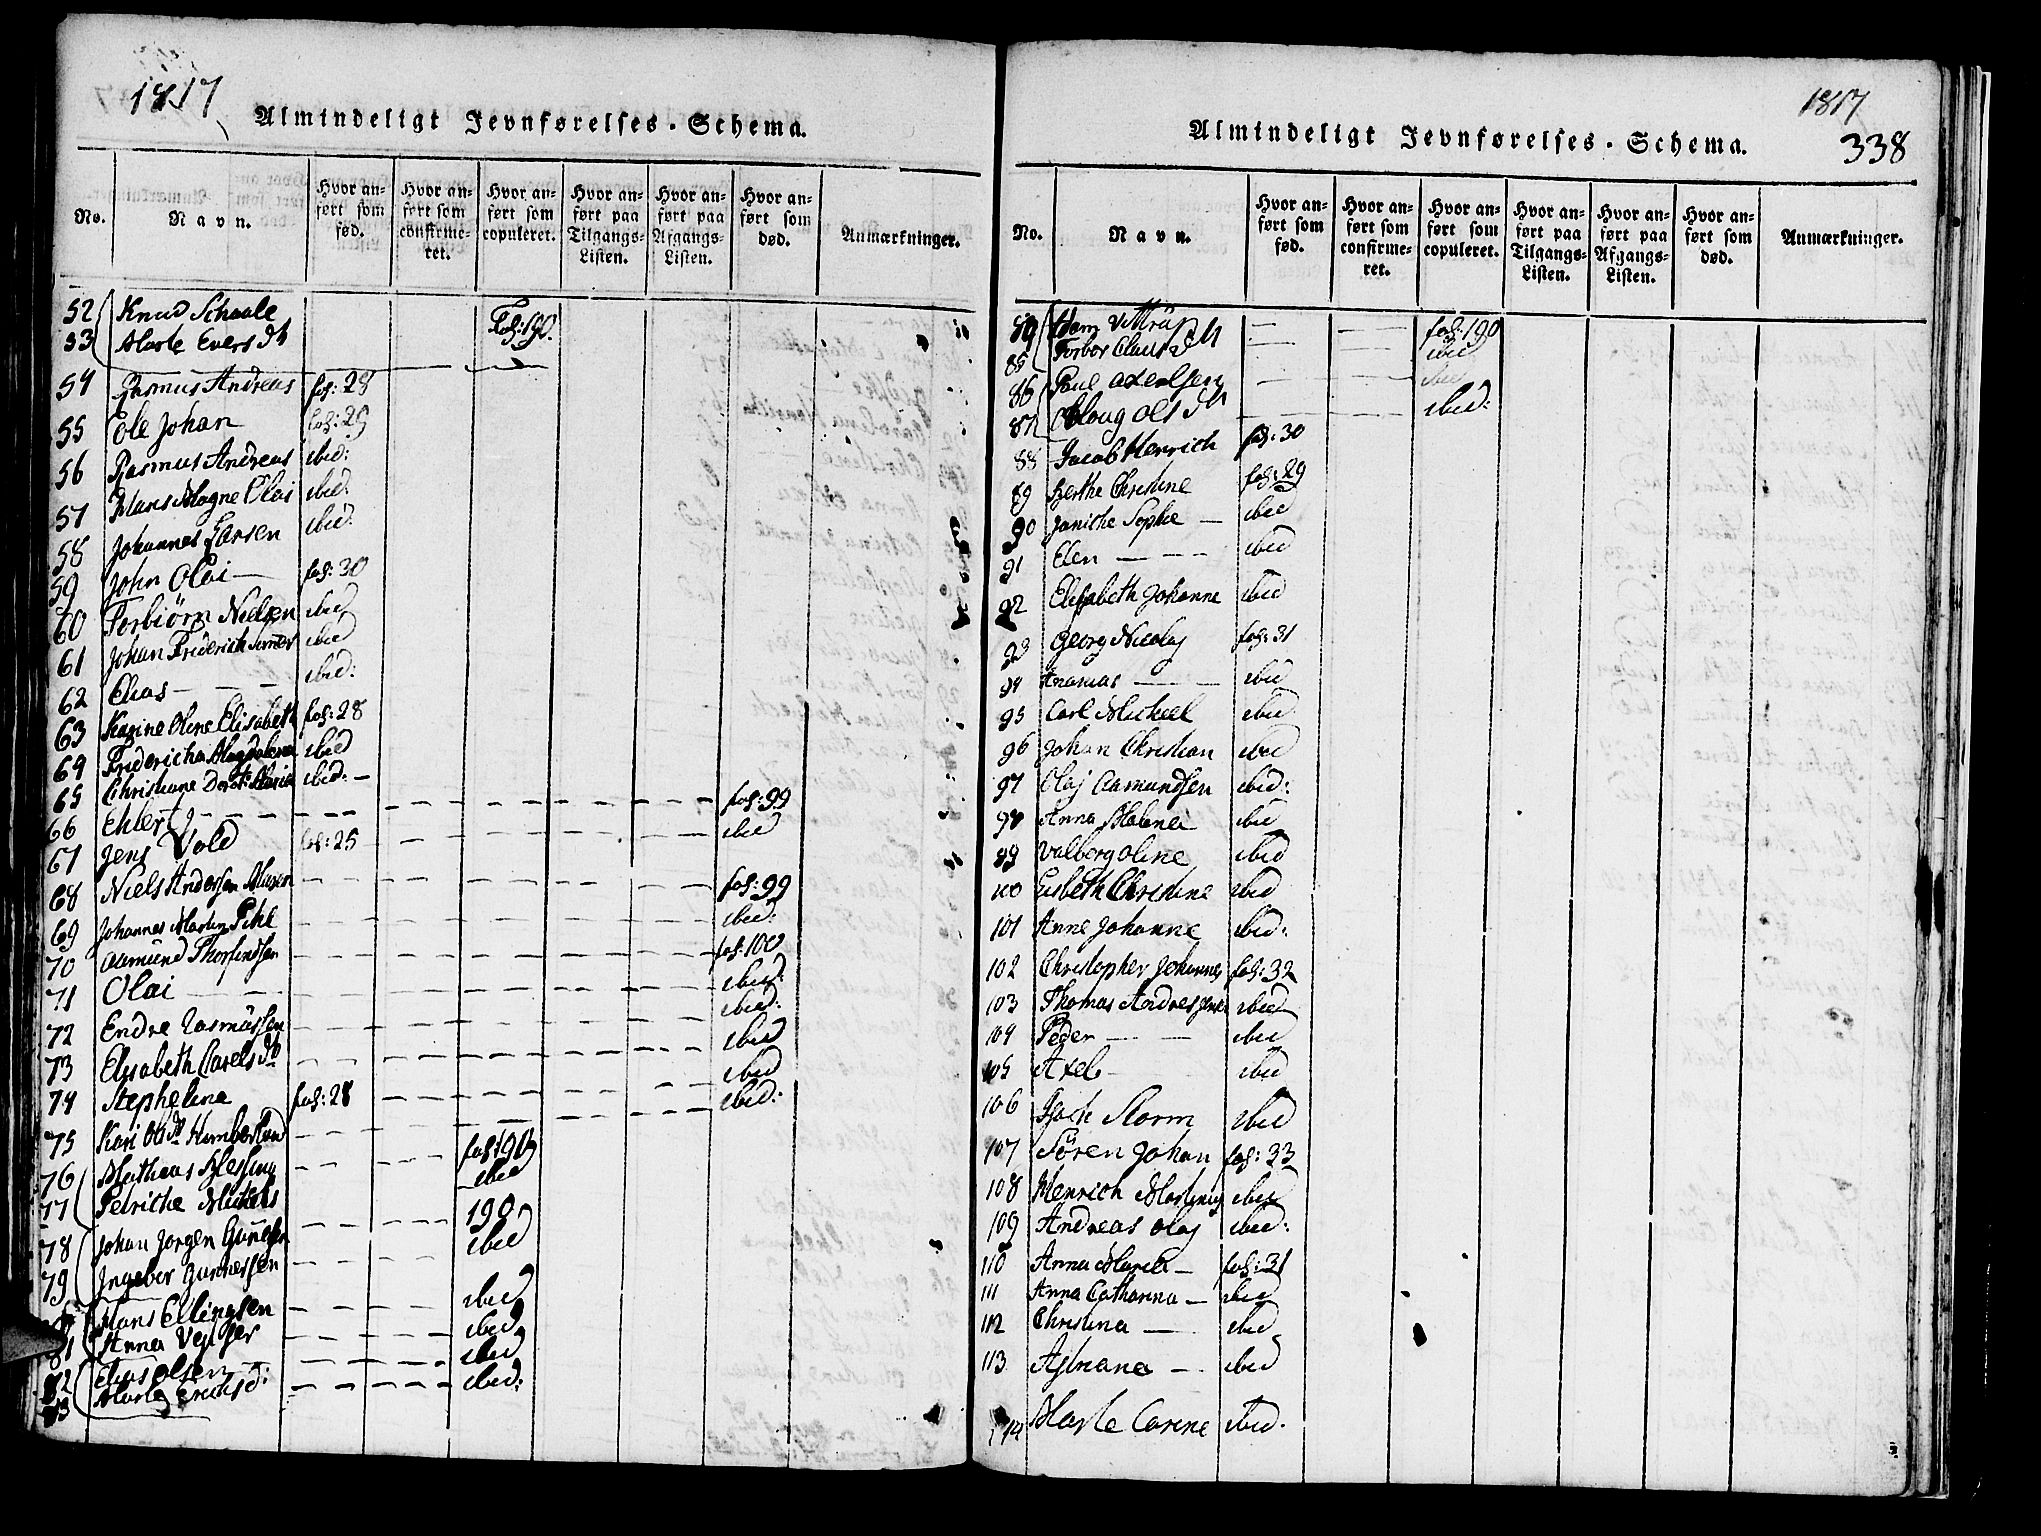 1817
Almindeligt Jevnførelses-Schema.
No.
Navn.
Hvor anført som fød.
Hvor anført som confirmeret.
Hvor anført som copuleret.
Hvor anført paa Tilgangs-Listen.
Hvor anført paa Afgangs-Listen.
Hvor anført som død.
Anmærkninger.
52 Knud Schaale
53 Marte Evers fol: 190.
54 Rasmus Andreas fol: 28
55 Ole Johan fol: 29
56 Rasmus Andreas ibid:
57 Hans Magne Olai ibid:
58 Johannes Larsen ibid:
59 John Olai — fol: 30
60 Torbiörn Nielsen ibid
61 Johan Friderich ibid
62 Elias — — — ibid:
63 Karine Oline Elisabeth fol: 28
64 Fridericha Magdalena ibid
65 Christiane Dorot: Maria ibid: —
66 Ehler fol: 99
67 Jens Vold fol: 25 ibid
68 Niels Andersen fol: 99
69 Johannes Martin Pihl ibid:
70 Aamund Thorsindsen fol: 100
71 Olai ibid:
72 Endre Rasmussen ibid:
73 Elisabeth Carels ibid
74 Stephelina fol: 28 ibid
75 Kari ibid:
76 Mathias fol: 190
77 Petriche Michels ibid
78 Johan Jorgen 190
79 Ingebor Gunnersen ibid
Hans Ellingsen ibid
81 Anna ibid
82 Elias Olsen ibid
83 Marte Erichsd: ibid:
1817
338
Almindeligt Jevnførelses-Schema.
No.
Navn.
Hvor anført som fød.
Hvor anført som confirmeret.
Hvor anført som copuleret.
Hvor anført paa Tilgangs-Listen.
Hvor anført paa Afgangs-Listen.
Hvor anført som død.
Anmærkninger.
Vittrup — — fol: 190
85 Torbor Claus — — ibid
86 Poul Axelsen — — ibid
87 Ols — — ibid:
88 Jacob Henrich fol: 30
89 Berthe Christine fol: 29
90 Janiche Sophe — ibid
91 Elen — — — ibid
92 Elisabeth Johanne ibid
93 Georg Nicolaj fol: 31
94 Thomas — — ibid
95 Carl Micheel ibid
96 Johan Christian ibid
97 Olaj Aamundsen ibid:
98 Anna Malena ibid
99 Valborg Oline ibid
100 Lisbeth Christine ibid
101 Anne Johanne ibid:
102 Christopher Johannes fol: 32
103 Thomas Andreas ibid
104 Peder — — ibid
105 Axel ibid
106 Isach Storm ibid
107 Sören Johan fol: 33
108 Henrich Martinus ibid
109 Andreas Olaj ibid:
110 Anna Maria — fol: 31
111 Anna Catharina — ibid
112 Christina — ibid
113 Asriana — ibid
114 Marte Carine ibid.